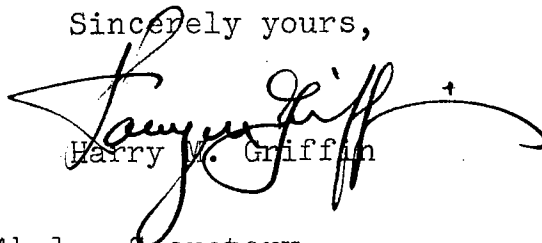 Sincerely yours,
Harry M. Griffin